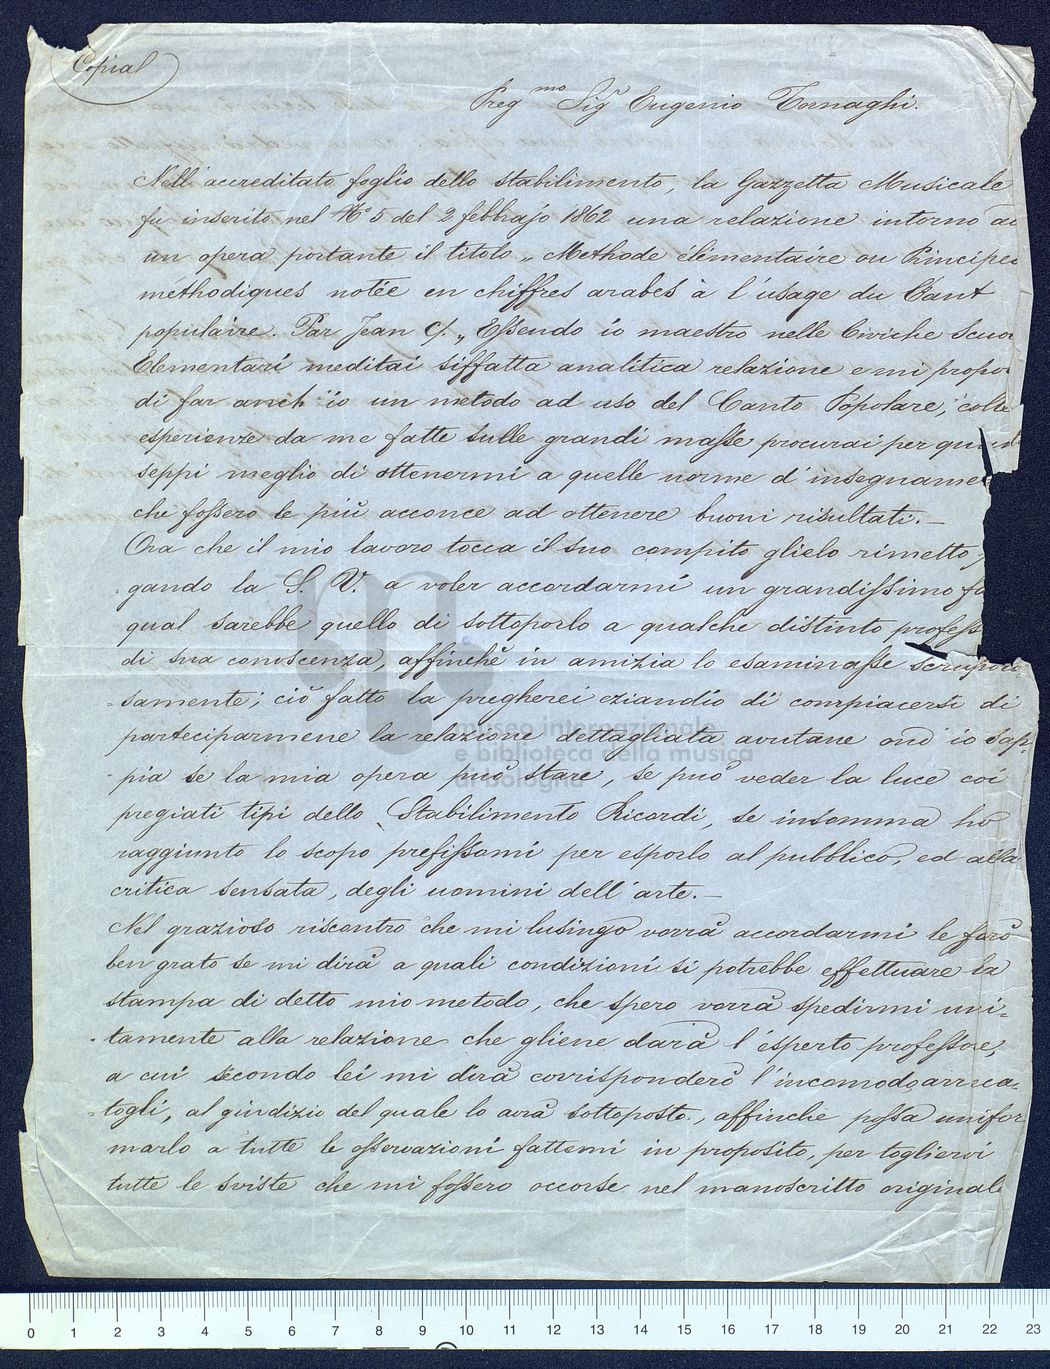 Copia
Preg.mo Sig.r Eugenio Tornaghi.
Nell'accreditato foglio dello stabilimento, la Gazzetta Musicale
fu inserito nel N.o 5 del 2 febbrajo 1862 una relazione intorno ad
un opera portante il titolo „ Methode élémentaire ou Principes
méthodiques notée en chiffres arabes à l'usage du Cant
populaire. Par Jean C/. „ Essendo io maestro nelle Civiche Scuo
Elementari meditai siffatta analitica relazione e mi propo
di far anch'io un metodo ad uso del Canto Popolare, colle
esperienze da me fatte sulle grandi masse procurai per
seppi meglio di attenermi a quelle norme d'insegname
che fossero le più acconce ad ottenere buoni risultati. —
Ora che il mio lavoro tocca il suo compito glielo rimetto
gando la S. V. a voler accordarmi un grandissimo fa
qual sarebbe quello di sottoporlo a qualche distinto profess
di sua conoscenza, affinchè in amizia lo esaminasse scrupolo
-samente; ciò fatto la pregherei eziandio di compiacersi di
parteciparmene la relazione dettagliata avutane ond'io sap-
-pia se la mia opera può stare, se può veder la luce coi
pregiati tipi dello Stabilimento Ricordi, se insomma ho
raggiunto lo scopo prefissomi per esporlo al pubblico, ed alla
critica sensata, degli uomini dell'arte. —
Nel grazioso riscontro che mi lusingo vorrà accordarmi le farò
ben grato se mi dirà a quali condizioni si potrebbe effettuare la
stampa di detto mio metodo, che spero vorrà spedirmi uni-
-tamente alla relazione che gliene darà l'esperto professore,
a cui secondo lei mi dirà corrisponderò l'incomodo arreca-
-togli, al giudizio del quale lo avrà sottoposto, affinche possa unifor
marlo a tutte le osservazioni fattemi in proposito, per togliervi
tutte le sviste che mi fossero occorse nel manoscritto originale
museo internazionale
e biblioteca della musica
di bologna
0 1 2 3 4 5 6 7 8 9 10 11 12 13 14 15 16 17 18 19 20 21 22 23